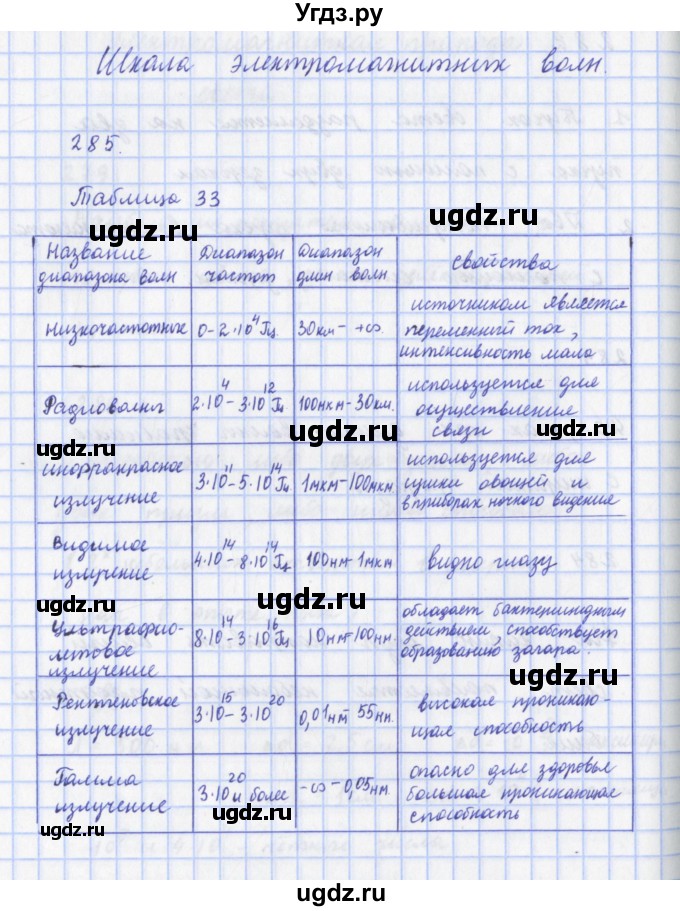 Угдз.ру
Шкала электромагнитных волн.
285.
Таблица 33
ugdz.ru ugdz.ru
Название диапазона волн | Диапазон частот | Диапазон длин волн | Свойства
Низкочастотные | 0 - 2·10⁴ Гц | 30км - +∞. | источником является переменный ток, интенсивность мала
ugdz.ru
Радиоволны | 2·10⁴ - 3·10¹² Гц | 100мкм - 30км. | используется для осуществления связи
ugdz.ru ugdz.ru ugdz.ru
инфракрасное излучение | 3·10¹¹ - 5·10¹⁴ Гц | 1мкм - 100мкм | используется для сушки овощей и в приборах ночного видения
ugdz.ru
Видимое излучение | 4·10¹⁴ - 8·10¹⁴ Гц | 100нм - 1мкм | видно глазу
ugdz.ru
Ультрафиолетовое излучение | 8·10¹⁴ - 3·10¹⁶ Гц | 10нм - 100нм. | обладает бактерицидным действием, способствует образованию загара.
ugdz.ru ugdz.ru
Рентгеновское излучение | 3·10¹⁵ - 3·10²⁰ | 0,01нм - 55нм. | высокая проникающая способность
ugdz.ru
Гамма излучение | 3·10²⁰ и более | -∞ - 0,05нм. | опасно для здоровья большая проникающая способность
ugdz.ru ugdz.ru
ugdz.ru